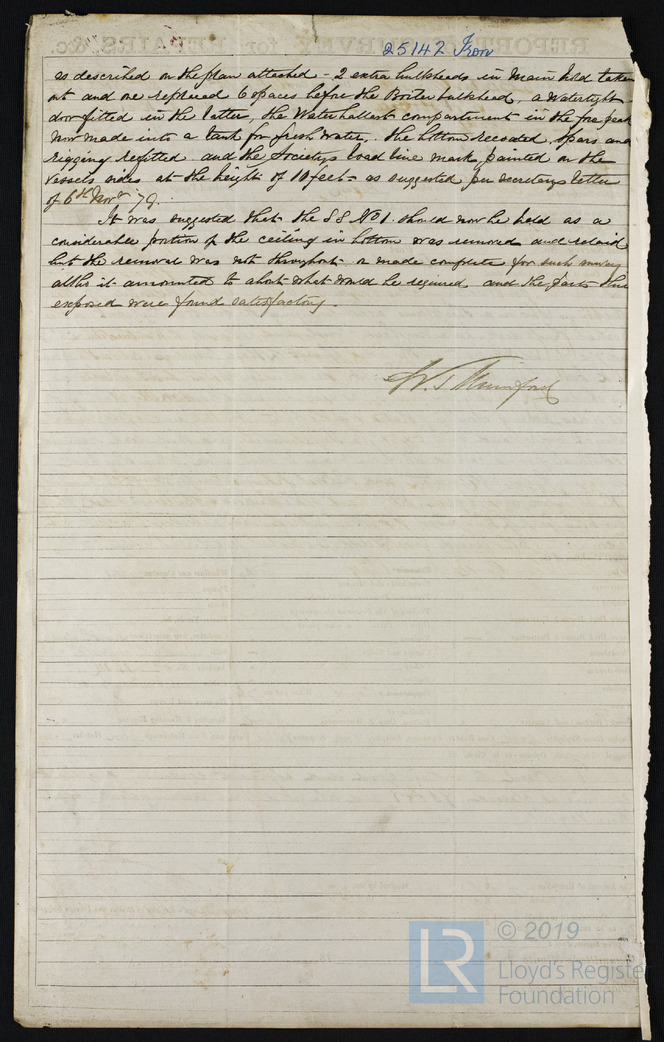 25142 Iron
as described on the plan attached - 2 extra bulkheads in Main hold taken
out and one replaced 6 spaces before the Boiler bulkhead, a Watertight
door fitted in the latter, the Water ballast compartment in the fore peak
now made into a tank for fresh water, the bottom recoated, Spars and
rigging refitted and the Society's load line mark painted on the
Vessels sides at the height of 10 feet as suggested per secretary's letter
of 6th Nov 79.
It was suggested that the SS No 1. should now be held as a
considerable portion of the ceiling in bottom was removed and relaid
but the removal was not throughout or made complete for such survey
altho it amounted to about what would be required and the parts thus
exposed were found satisfactory.
W. J. Mumford
© 2019
LR
Lloyd's Register
Foundation